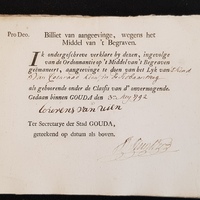 Pro Deo. Billiet van aangeevinge, wegens het
Middel van 't Begraven.
IK ondergeschreve verklare by dezen, ingevolge
van de Ordonnantie op 't Middel van 't Begraven
geëmaneert, aangeevinge te doen van het Lyk van 't Kind
van
als gehoorende onder de Classis van d' onvermogende.
Gedaan binnen GOUDA den 1792
Lourens van
Ter Secretarye der Stad GOUDA,
geteekend op datum als boven.